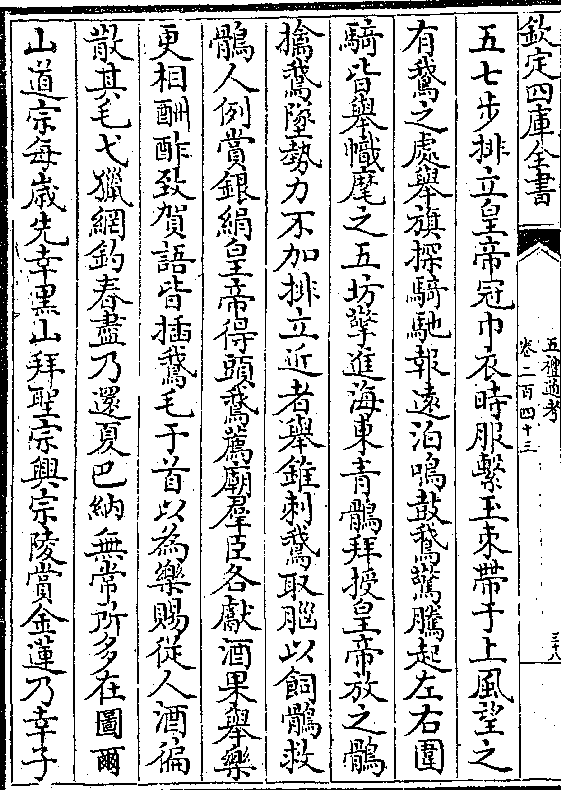 欽定四庫全書
五禮通考
卷二百四十三
三十八
五七步排立皇帝冠巾衣時服繫玉束帶于上風望之
有鵞之處舉旗探騎馳報遠泊鳴鼓鵞驚騰起左右圍
騎皆舉幟麾之五坊擎進海東青鶻拜授皇帝放之鶻
擒鵞墜勢力不加排立近者舉錐刺鵞取腦以飼鶻救
鶻人例賞銀絹皇帝得頭鵞薦廟羣臣各獻酒果舉樂
更相酬酢致賀語皆插鵞毛于首以為樂賜從人酒徧
散其毛弋獵網鈎春盡乃還夏巴納無常所多在圖爾
山道宗每嵗先幸黑山拜聖宗興宗陵賞金蓮乃幸子